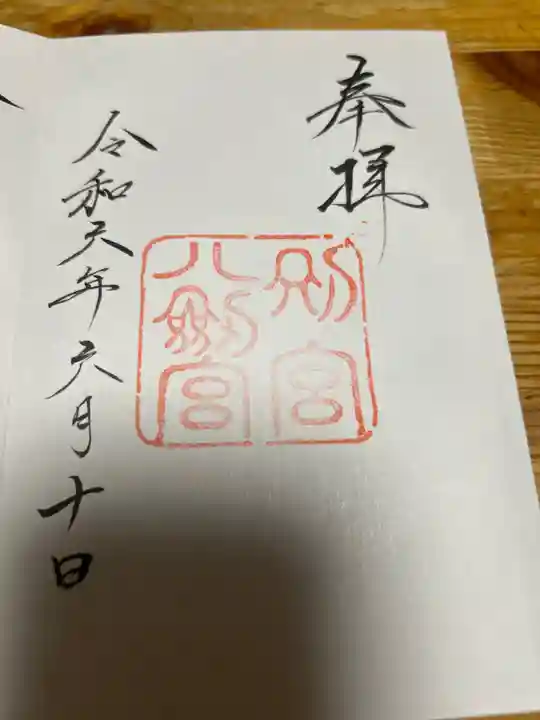 奉拝
別宮
八剱宮
令和六年六月十日